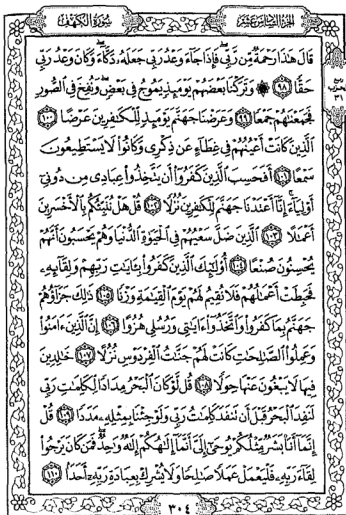 الجزء السادس عشر سورة الكهف
قَالَ هَٰذَا رَحْمَةٌ مِّن رَّبِّي ۖ فَإِذَا جَاءَ وَعْدُ رَبِّي جَعَلَهُ دَكَّاءَ ۖ وَكَانَ وَعْدُ رَبِّي
حَقًّا ٩٨ ۞ وَتَرَكْنَا بَعْضَهُمْ يَوْمَئِذٍ يَمُوجُ فِي بَعْضٍ ۖ وَنُفِخَ فِي الصُّورِ
فَجَمَعْنَاهُمْ جَمْعًا ٩٩ وَعَرَضْنَا جَهَنَّمَ يَوْمَئِذٍ لِّلْكَافِرِينَ عَرْضًا ١٠٠
الَّذِينَ كَانَتْ أَعْيُنُهُمْ فِي غِطَاءٍ عَن ذِكْرِي وَكَانُوا لَا يَسْتَطِيعُونَ
سَمْعًا ١٠١ أَفَحَسِبَ الَّذِينَ كَفَرُوا أَن يَتَّخِذُوا عِبَادِي مِن دُونِي
أَوْلِيَاءَ ۚ إِنَّا أَعْتَدْنَا جَهَنَّمَ لِلْكَافِرِينَ نُزُلًا ١٠٢ قُلْ هَلْ نُنَبِّئُكُم بِالْأَخْسَرِينَ
أَعْمَالًا ١٠٣ الَّذِينَ ضَلَّ سَعْيُهُمْ فِي الْحَيَاةِ الدُّنْيَا وَهُمْ يَحْسَبُونَ أَنَّهُمْ
يُحْسِنُونَ صُنْعًا ١٠٤ أُولَٰئِكَ الَّذِينَ كَفَرُوا بِآيَاتِ رَبِّهِمْ وَلِقَائِهِ
فَحَبِطَتْ أَعْمَالُهُمْ فَلَا نُقِيمُ لَهُمْ يَوْمَ الْقِيَامَةِ وَزْنًا ١٠٥ ذَٰلِكَ جَزَاؤُهُمْ
جَهَنَّمُ بِمَا كَفَرُوا وَاتَّخَذُوا آيَاتِي وَرُسُلِي هُزُوًا ١٠٦ إِنَّ الَّذِينَ آمَنُوا
وَعَمِلُوا الصَّالِحَاتِ كَانَتْ لَهُمْ جَنَّاتُ الْفِرْدَوْسِ نُزُلًا ١٠٧ خَالِدِينَ
فِيهَا لَا يَبْغُونَ عَنْهَا حِوَلًا ١٠٨ قُل لَّوْ كَانَ الْبَحْرُ مِدَادًا لِّكَلِمَاتِ رَبِّي
لَنَفِدَ الْبَحْرُ قَبْلَ أَن تَنفَدَ كَلِمَاتُ رَبِّي وَلَوْ جِئْنَا بِمِثْلِهِ مَدَدًا ١٠٩ قُلْ
إِنَّمَا أَنَا بَشَرٌ مِّثْلُكُمْ يُوحَىٰ إِلَيَّ أَنَّمَا إِلَٰهُكُمْ إِلَٰهٌ وَاحِدٌ ۖ فَمَن كَانَ يَرْجُوا
لِقَاءَ رَبِّهِ فَلْيَعْمَلْ عَمَلًا صَالِحًا وَلَا يُشْرِكْ بِعِبَادَةِ رَبِّهِ أَحَدًا ١١٠
ربع
الحزب
٣١
٣٠٤